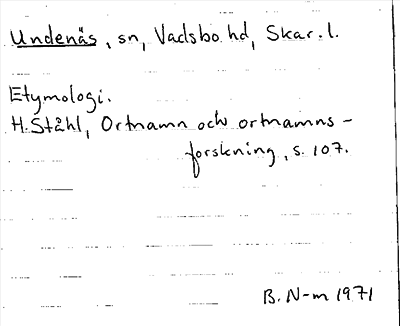 Undenäs, sn, Vadsbo hd, Skar. l.
Etymologi.
H. Ståhl, Ortnamn och ortnamns-
forskning, s. 107.
B. N-m 1971